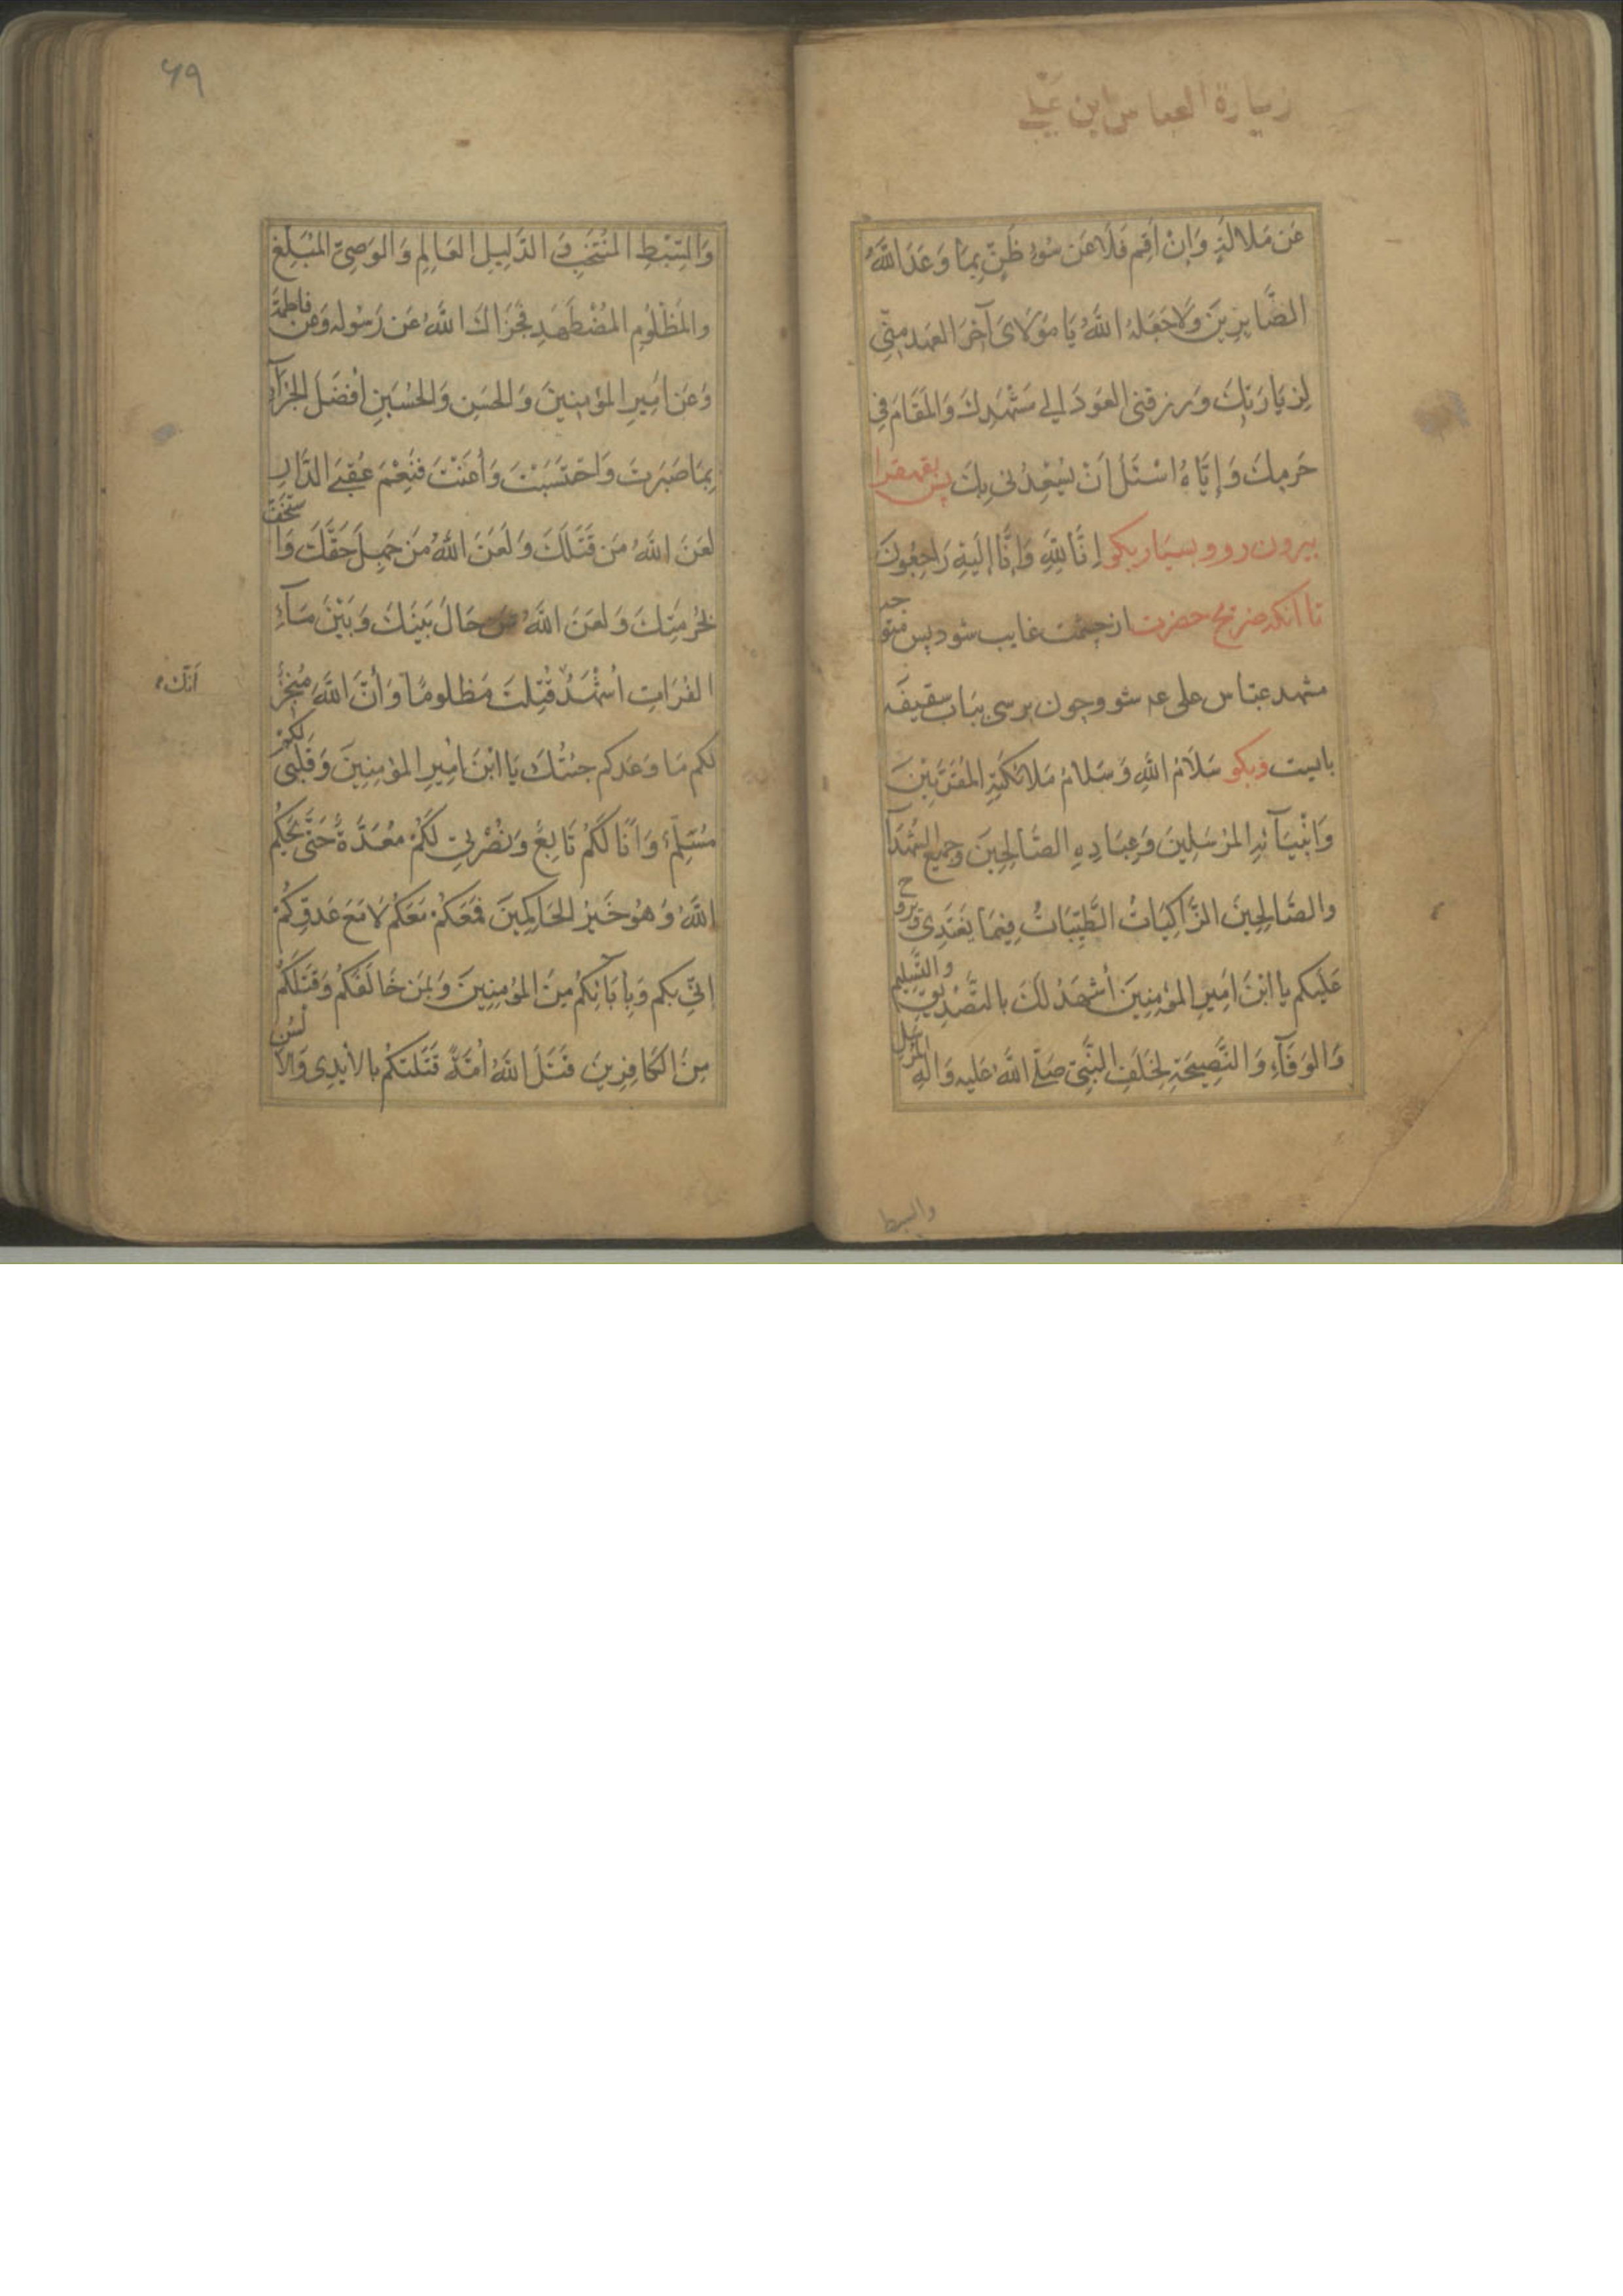 زيارة العباس ابن علي
عَن مَلالَةٍ وَاِنْ اُقِم فَلَا عَن سُوءِ ظَنٍّ بِمَا وَعَدَ اللّٰهُ
الصَّابِرِينَ وَلَاجَعَلَهُ اللّٰهُ يَا مَوْلَایَ آخِرَ العَهدِ مِنِّي
لِزِيَارَتِكَ وَرزقنى العَودَ اِلى مَشْهَدِكَ وَالمَقَامَ فِي
حَرَمِكَ وَاِيَّاهُ اسْئَلُ اَنْ يُسْعِدَنِى بِكَ پس
بيرون رو و بسيار بگو اِنَّا لِلّٰهِ وَاِنَّا اِلَيْهِ رَاجِعُونَ
تا آنكه ضريح حضرت از چشمت غايب شود پس متوجه
مشهد عباس على عه شو و چون برسى بباب سقيفه
بايست و بگو سَلَامُ اللّٰهِ وَسَلامُ مَلائكَتِهِ المُقَرَّبِيْنَ
وَانْبِيَآئِهِ المُرْسَلِينَ وَعِبَادِهِ الصَّالِحِينَ وَجميع الشُّهَدَآ
والصَّالِحِينَ الزَّاكِيَاتُ الطَّيِّبَاتُ فِيمَا تَغتَدِى وَتَروح
عَلَيكم يا ابْنَ اَمِيرِ المؤمِنِينَ أشهَدُ لَكَ بالتَّصْدِيقِ والتَّسليم
وَالوَفَآءِ وَالنَّصِيحَةِ لِخَلَفِ النَّبِيّ صَلَّى اللّٰهُ عَليه وَالهِ المُرْسَل
والسبط
٦٩
وَالسِّبْطِ المُنْتَجَبِ وَ الدَّلِيلِ العَالِمِ وَالوَصِيّ المُبَلِّغِ
والمَظْلُومِ المُضْطَهَدِ فَجَزَاكَ اللّٰهُ عَن رَسُولِه وَعن فاطمة
وَعَن اَمِيرِ المؤمِنِينَ وَالحَسَنِ وَالحُسَينِ أفضَلَ الجَزَآءِ
بِمَا صَبَرتَ وَاحْتَسَبْتَ وَأعَنْتَ فَنِعْمَ عُقبَى الدَّارِ
لعَنَ اللّٰهُ مَن قَتَلَكَ وَلَعَنَ اللّٰهُ مَن جَهِلَ حَقَّكَ وَاستَخَفَّ
بحُرمَتِكَ وَلعَنَ اللّٰهُ مَن حَالَ بَينَكَ وَبَيْنَ مَآءِ
الفُرَاتِ اَشْهَدُ قُتِلتَ مَظلومًا وَأنَّ اللّٰهَ مُنجِزٌ
اَنَّكَ
لكم مَا وَعَدَكم جئتُك يَا ابْنَ اَمِيرِ المؤمِنِينَ وَقَلبى لكم
مُسَلِّمٌ وَاَنَا لَكُم تَابِعٌ وَنُصْرتِي لَكُم مُعَدَّةٌ حَتّى يَحكُم
اللّٰهُ وَهُوَ خَيرُ الحَاكِمِينَ فمَعَكُم مَعَكُم لا مَعَ عَدوِّكُم
اِنّى بكم وَبِآبَائِكُم مِنَ المؤمِنِينَ وَبِمَن خَالَفَكُم وَقَتَلَكُم
مِنَ الكَافِرِينَ قَتَلَ اللّٰهُ اُمَّةً قَتَلَتكُم بالأيدِى وَالألسُن